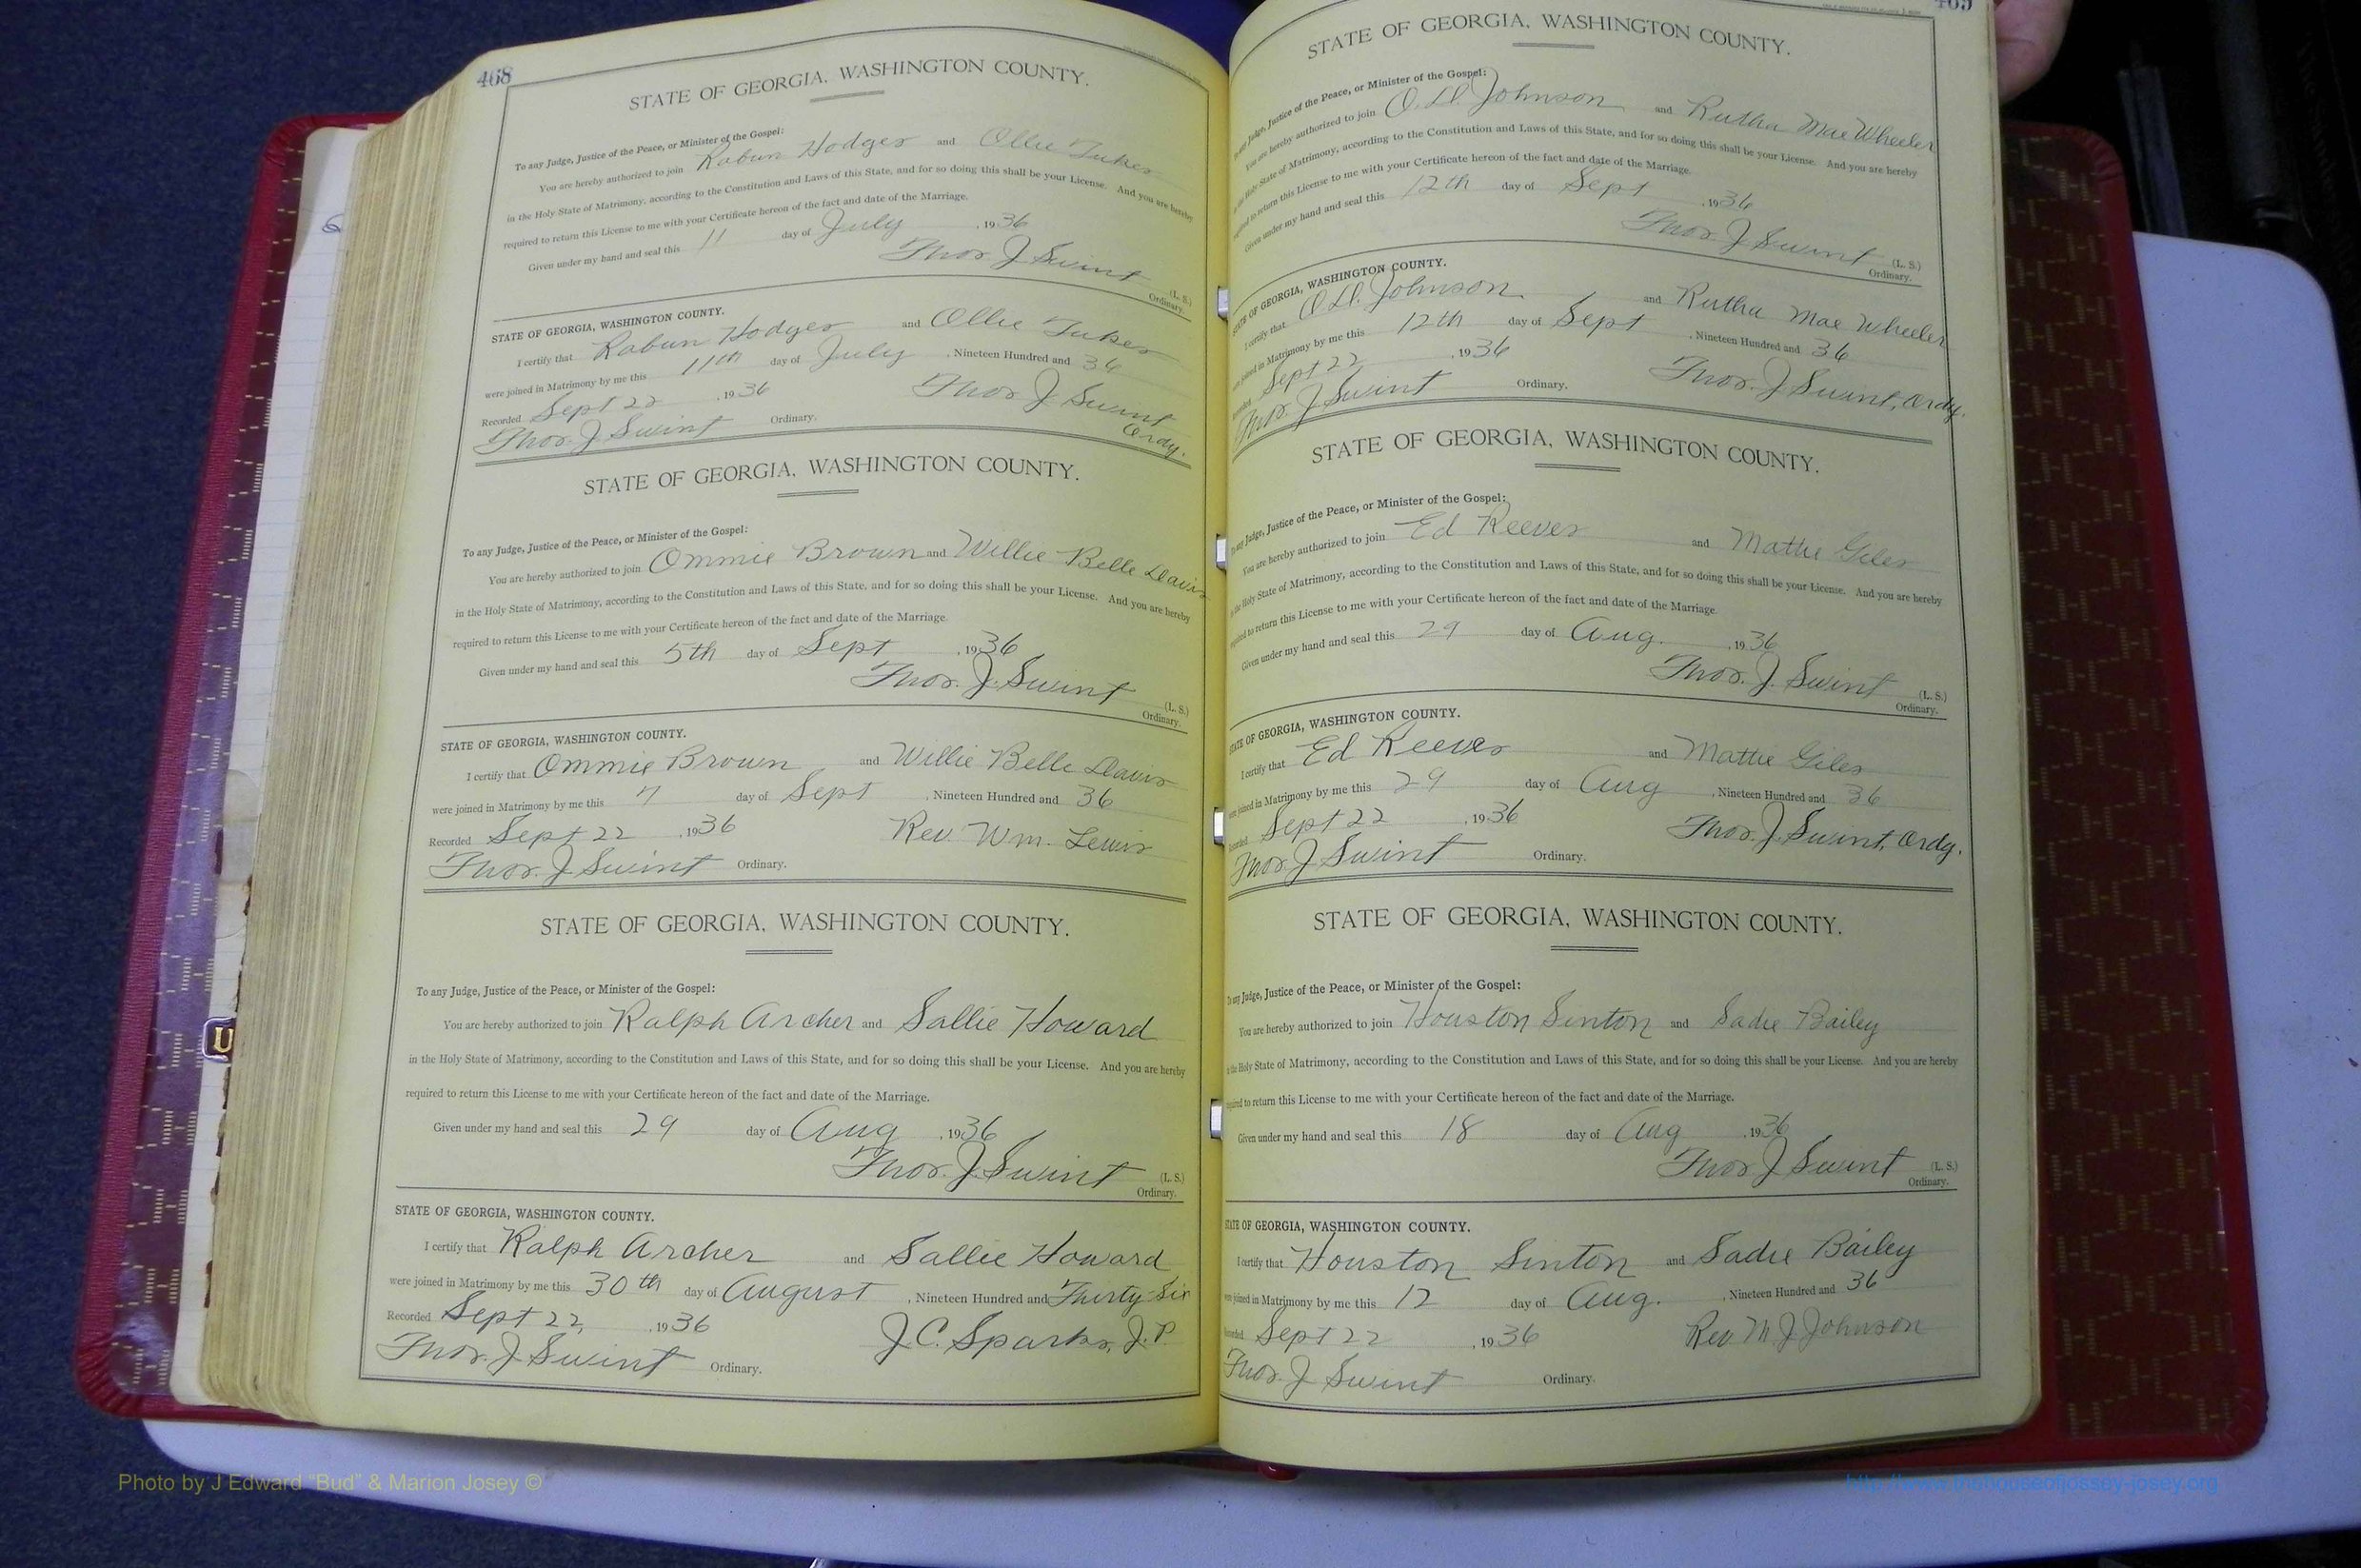 468
STATE OF GEORGIA, WASHINGTON COUNTY.
To any Judge, Justice of the Peace, or Minister of the Gospel:
You are hereby authorized to join Rabun Hodges and Ollie Tukes
in the Holy State of Matrimony, according to the Constitution and Laws of this State, and for so doing this shall be your License. And you are hereby
required to return this License to me with your Certificate hereon of the fact and date of the Marriage.
Given under my hand and seal this 11 day of July, 1936
Thos J Swint (L. S.)
Ordinary.
STATE OF GEORGIA, WASHINGTON COUNTY.
I certify that Rabun Hodges and Ollie Tukes
were joined in Matrimony by me this 11th day of July, Nineteen Hundred and 36
Recorded Sept 22, 1936 Thos J Swint
Thos. J Swint Ordinary. Ordy.
STATE OF GEORGIA, WASHINGTON COUNTY.
To any Judge, Justice of the Peace, or Minister of the Gospel:
You are hereby authorized to join Ommie Brown and Willie Belle Davis
in the Holy State of Matrimony, according to the Constitution and Laws of this State, and for so doing this shall be your License. And you are hereby
required to return this License to me with your Certificate hereon of the fact and date of the Marriage.
Given under my hand and seal this 5th day of Sept, 1936
Thos. J. Swint (L. S.)
Ordinary.
STATE OF GEORGIA, WASHINGTON COUNTY.
I certify that Ommie Brown and Willie Belle Davis
were joined in Matrimony by me this 7 day of Sept, Nineteen Hundred and 36
Recorded Sept 22, 1936 Rev. Wm. Lewis
Thos. J Swint Ordinary.
STATE OF GEORGIA, WASHINGTON COUNTY.
To any Judge, Justice of the Peace, or Minister of the Gospel:
You are hereby authorized to join Ralph Archer and Sallie Howard
in the Holy State of Matrimony, according to the Constitution and Laws of this State, and for so doing this shall be your License. And you are hereby
required to return this License to me with your Certificate hereon of the fact and date of the Marriage.
Given under my hand and seal this 29 day of Aug, 1936
Thos. J. Swint (L. S.)
Ordinary.
STATE OF GEORGIA, WASHINGTON COUNTY.
I certify that Ralph Archer and Sallie Howard
were joined in Matrimony by me this 30th day of August, Nineteen Hundred and Thirty Six
Recorded Sept 22, 1936 J. C. Sparks, J. P.
Thos. J. Swint Ordinary.
469
STATE OF GEORGIA, WASHINGTON COUNTY.
To any Judge, Justice of the Peace, or Minister of the Gospel:
You are hereby authorized to join O. D. Johnson and Rutha Mae Wheeler
in the Holy State of Matrimony, according to the Constitution and Laws of this State, and for so doing this shall be your License. And you are hereby
required to return this License to me with your Certificate hereon of the fact and date of the Marriage.
Given under my hand and seal this 12th day of Sept, 1936
Thos. J Swint (L. S.)
Ordinary.
STATE OF GEORGIA, WASHINGTON COUNTY.
I certify that O. D. Johnson and Rutha Mae Wheeler
were joined in Matrimony by me this 12th day of Sept, Nineteen Hundred and 36
Recorded Sept 22, 1936 Thos. J Swint, Ordy.
Thos. J Swint Ordinary.
STATE OF GEORGIA, WASHINGTON COUNTY.
To any Judge, Justice of the Peace, or Minister of the Gospel:
You are hereby authorized to join Ed Reeves and Mattie Giles
in the Holy State of Matrimony, according to the Constitution and Laws of this State, and for so doing this shall be your License. And you are hereby
required to return this License to me with your Certificate hereon of the fact and date of the Marriage.
Given under my hand and seal this 29 day of Aug., 1936
Thos. J. Swint (L. S.)
Ordinary.
STATE OF GEORGIA, WASHINGTON COUNTY.
I certify that Ed Reeves and Mattie Giles
were joined in Matrimony by me this 29 day of Aug, Nineteen Hundred and 36
Recorded Sept 22, 1936 Thos. J. Swint, Ordy.
Thos. J Swint Ordinary.
STATE OF GEORGIA, WASHINGTON COUNTY.
To any Judge, Justice of the Peace, or Minister of the Gospel:
You are hereby authorized to join Houston Sinton and Sadie Bailey
in the Holy State of Matrimony, according to the Constitution and Laws of this State, and for so doing this shall be your License. And you are hereby
required to return this License to me with your Certificate hereon of the fact and date of the Marriage.
Given under my hand and seal this 18 day of Aug, 1936
Thos J Swint (L. S.)
Ordinary.
STATE OF GEORGIA, WASHINGTON COUNTY.
I certify that Houston Sinton and Sadie Bailey
were joined in Matrimony by me this 12 day of Aug., Nineteen Hundred and 36
Recorded Sept 22, 1936 Rev. M. J. Johnson
Thos. J Swint Ordinary.
Photo by J Edward "Bud" & Marion Josey ©
http://www.thehouseofjossey-josey.org